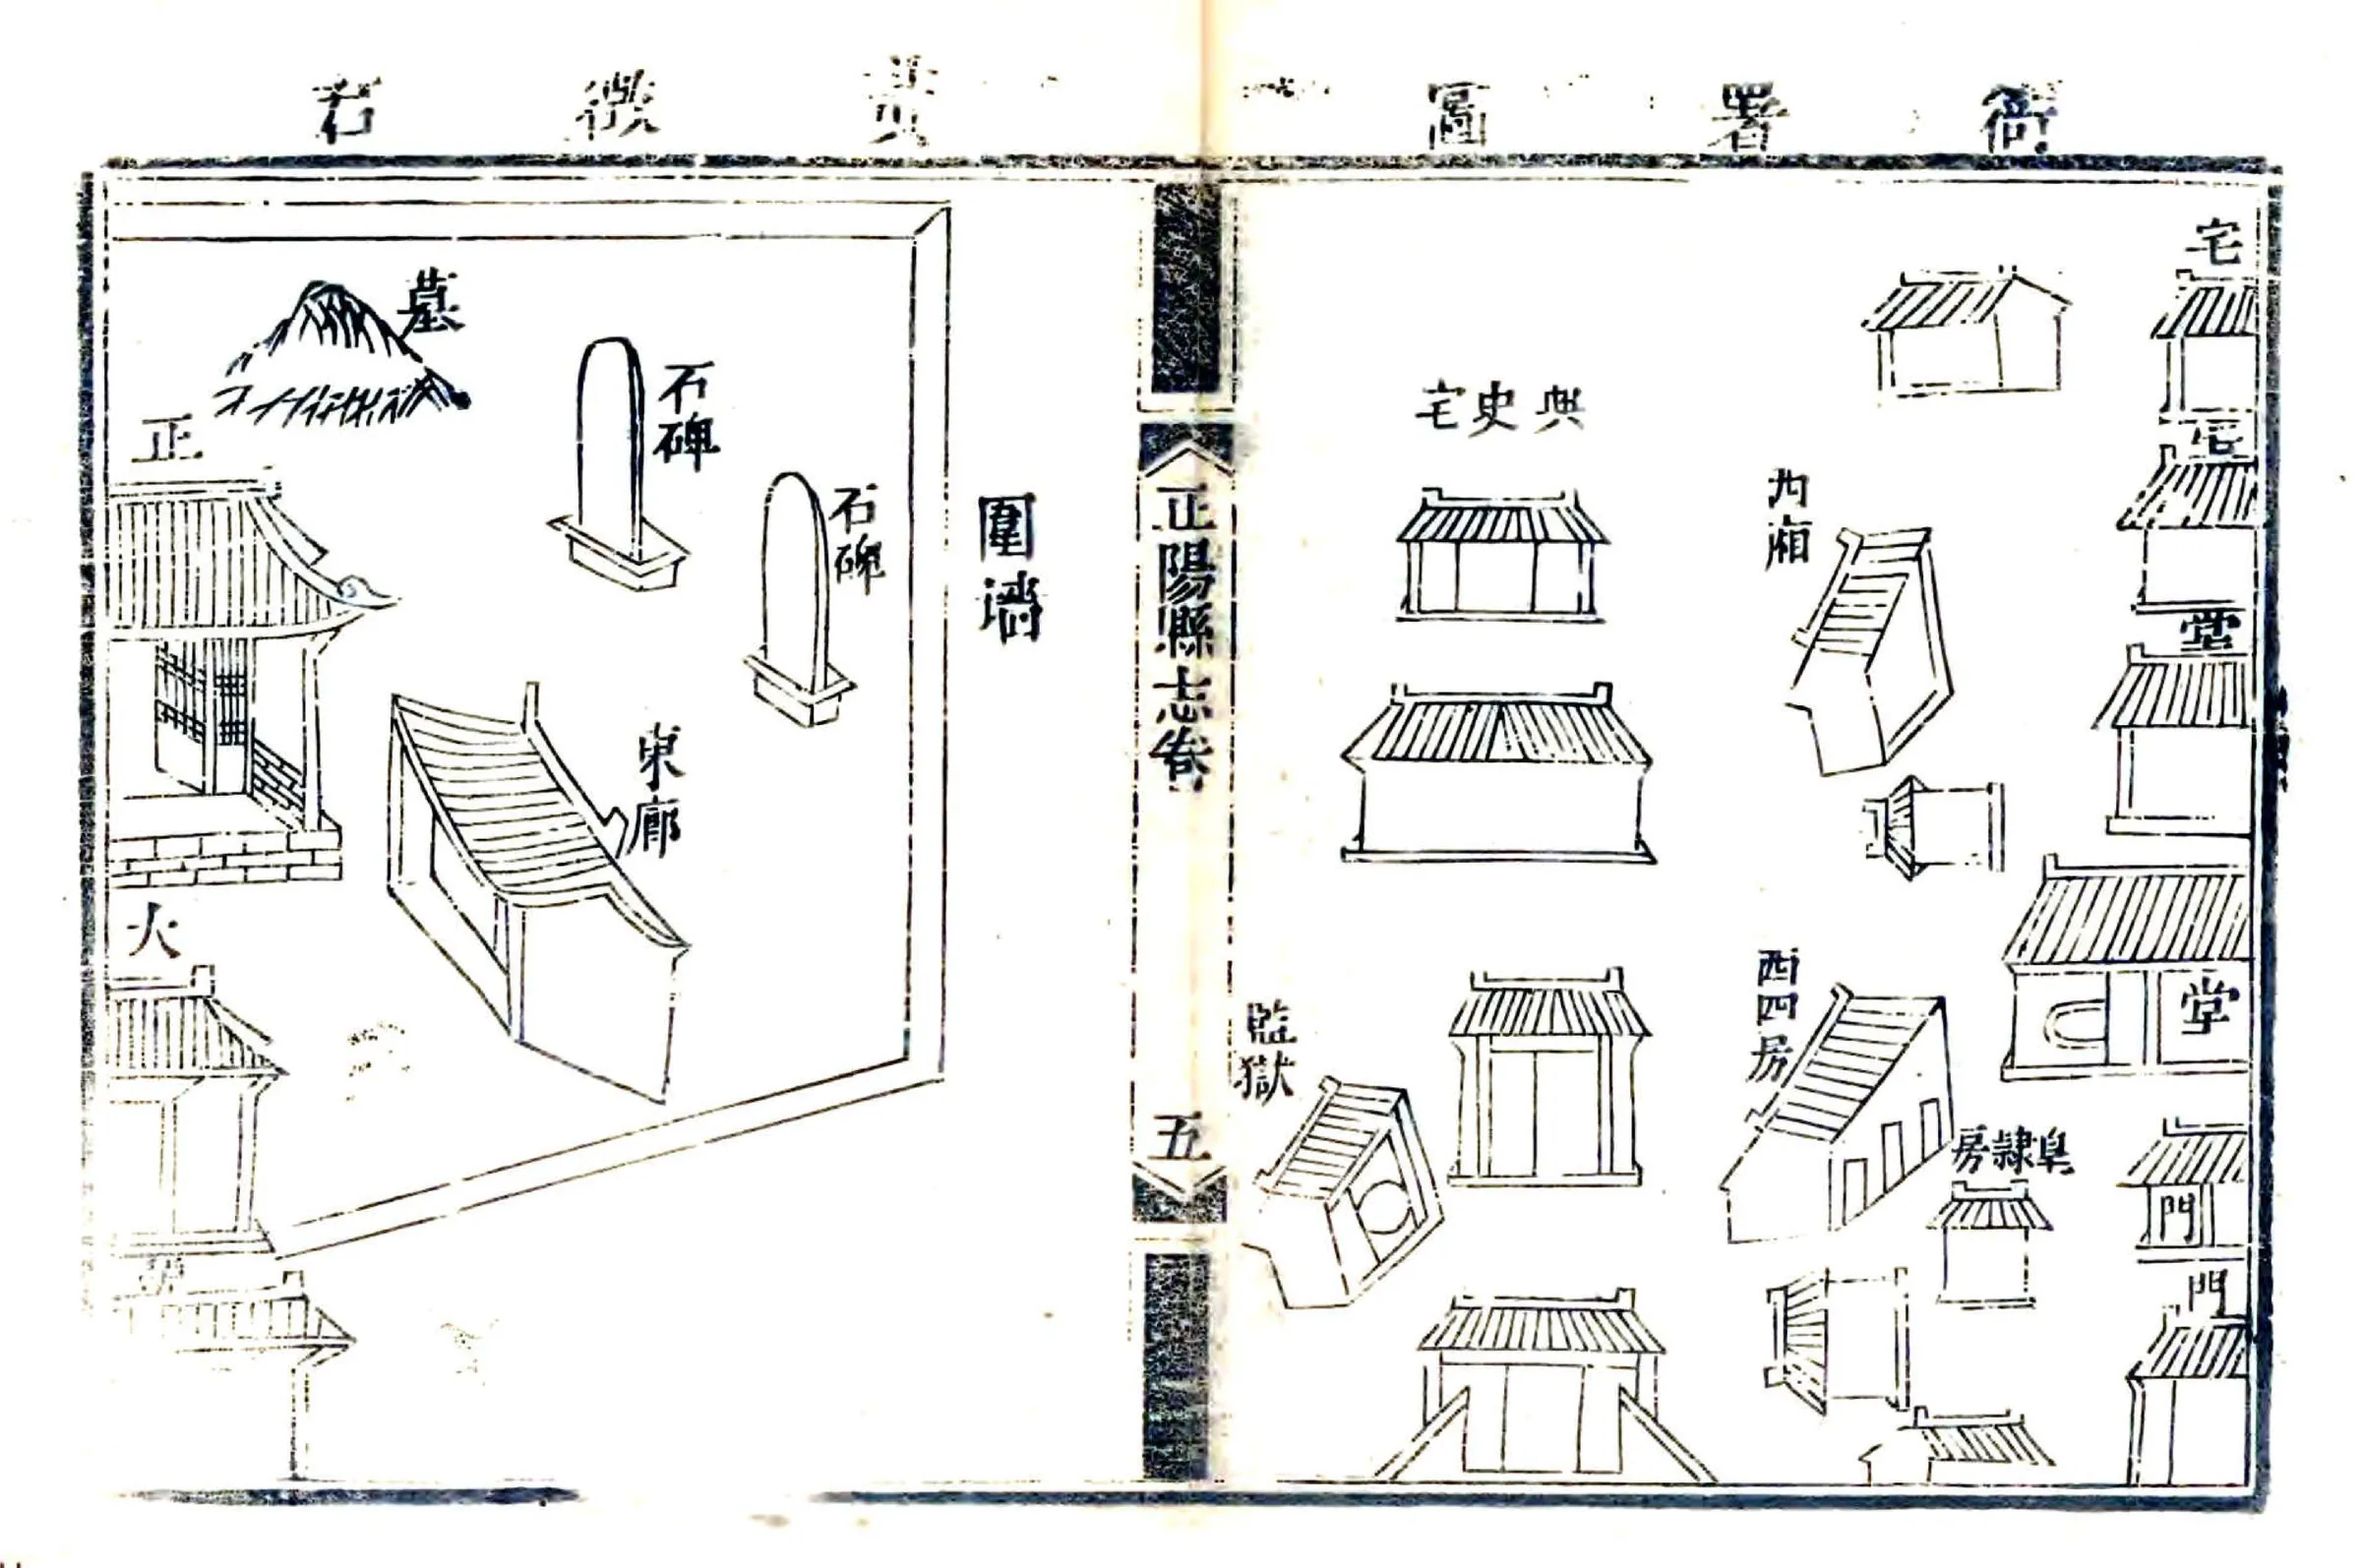 衙署圖
宅
宅
堂
堂
門
門
西廂
西四房
皁隷房
典史宅
監獄
正陽縣志卷
五
黃徵右
圍墻
石碑
石碑
墓
東廊
正
火